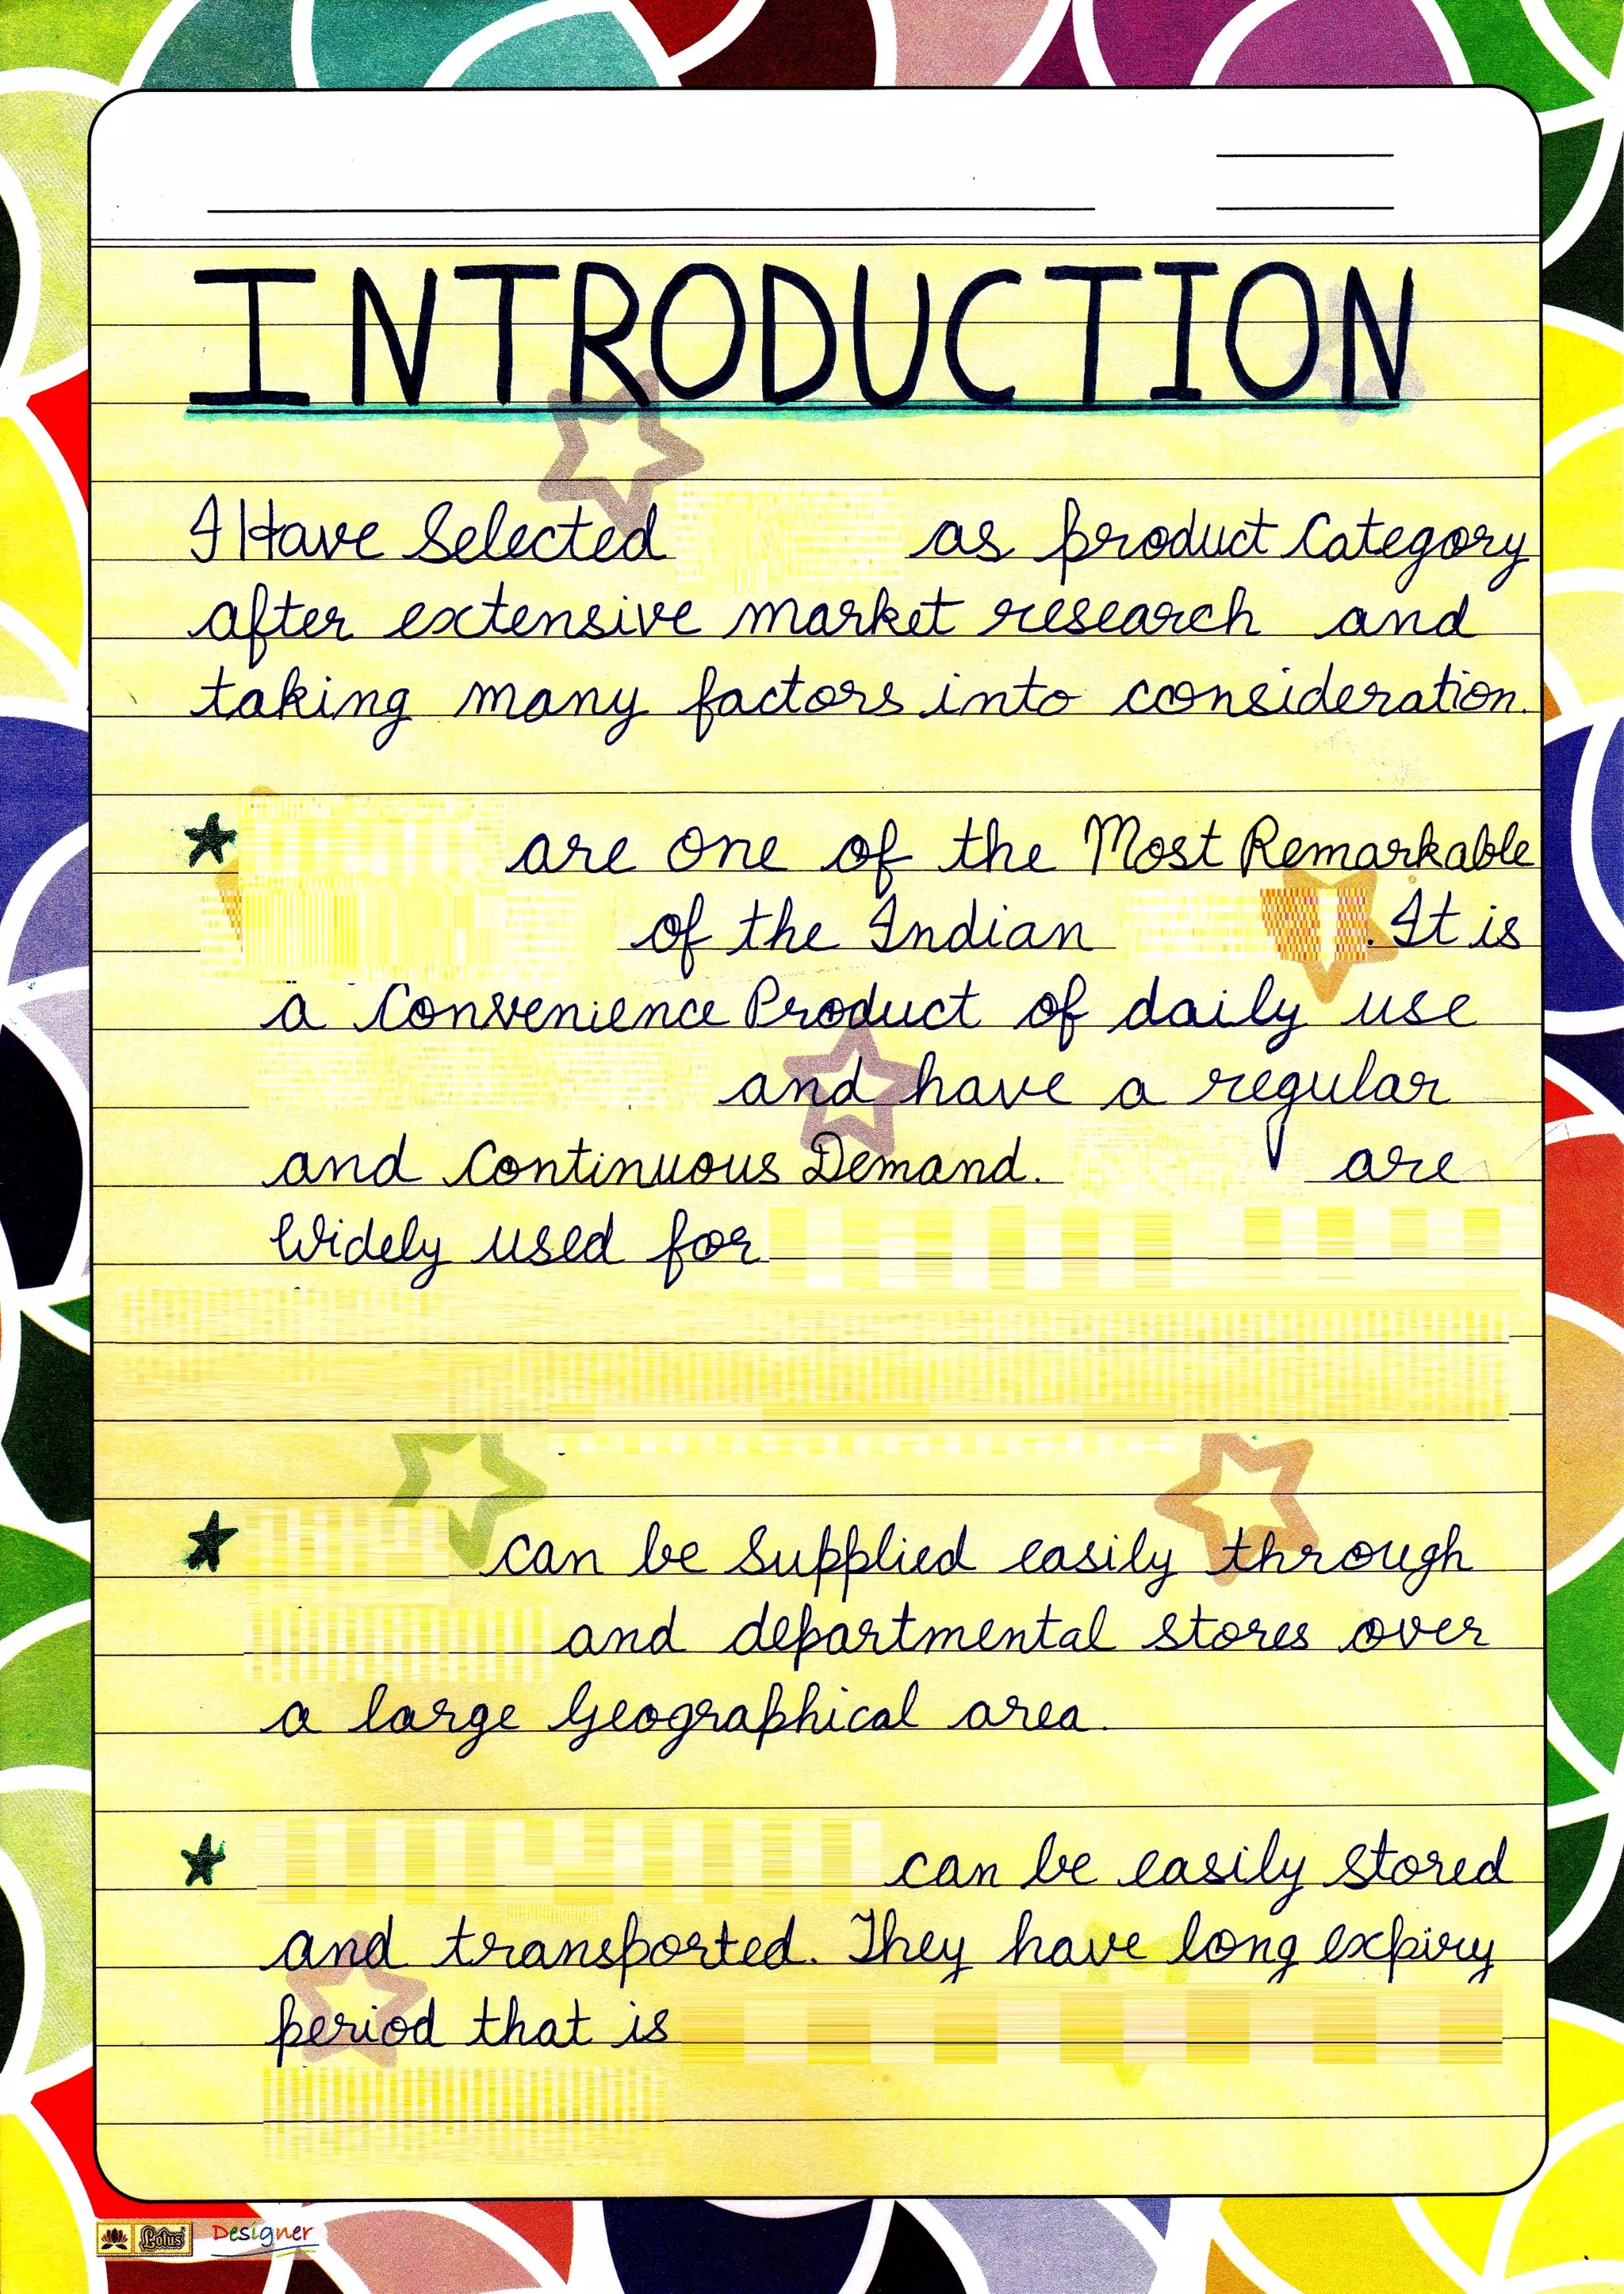 INTRODUCTION
I Have Selected as product Category
after extensive market research and
taking many factors into consideration.
★ are one of the Most Remarkable
of the Indian . It is
a Convenience Product of daily use
and have a regular
and Continuous Demand. are
Widely used for
★ can be Supplied easily through
and departmental stores over
a large Geographical area.
★ can be easily stored
and transported. They have long expiry
period that is
Lotus Designer